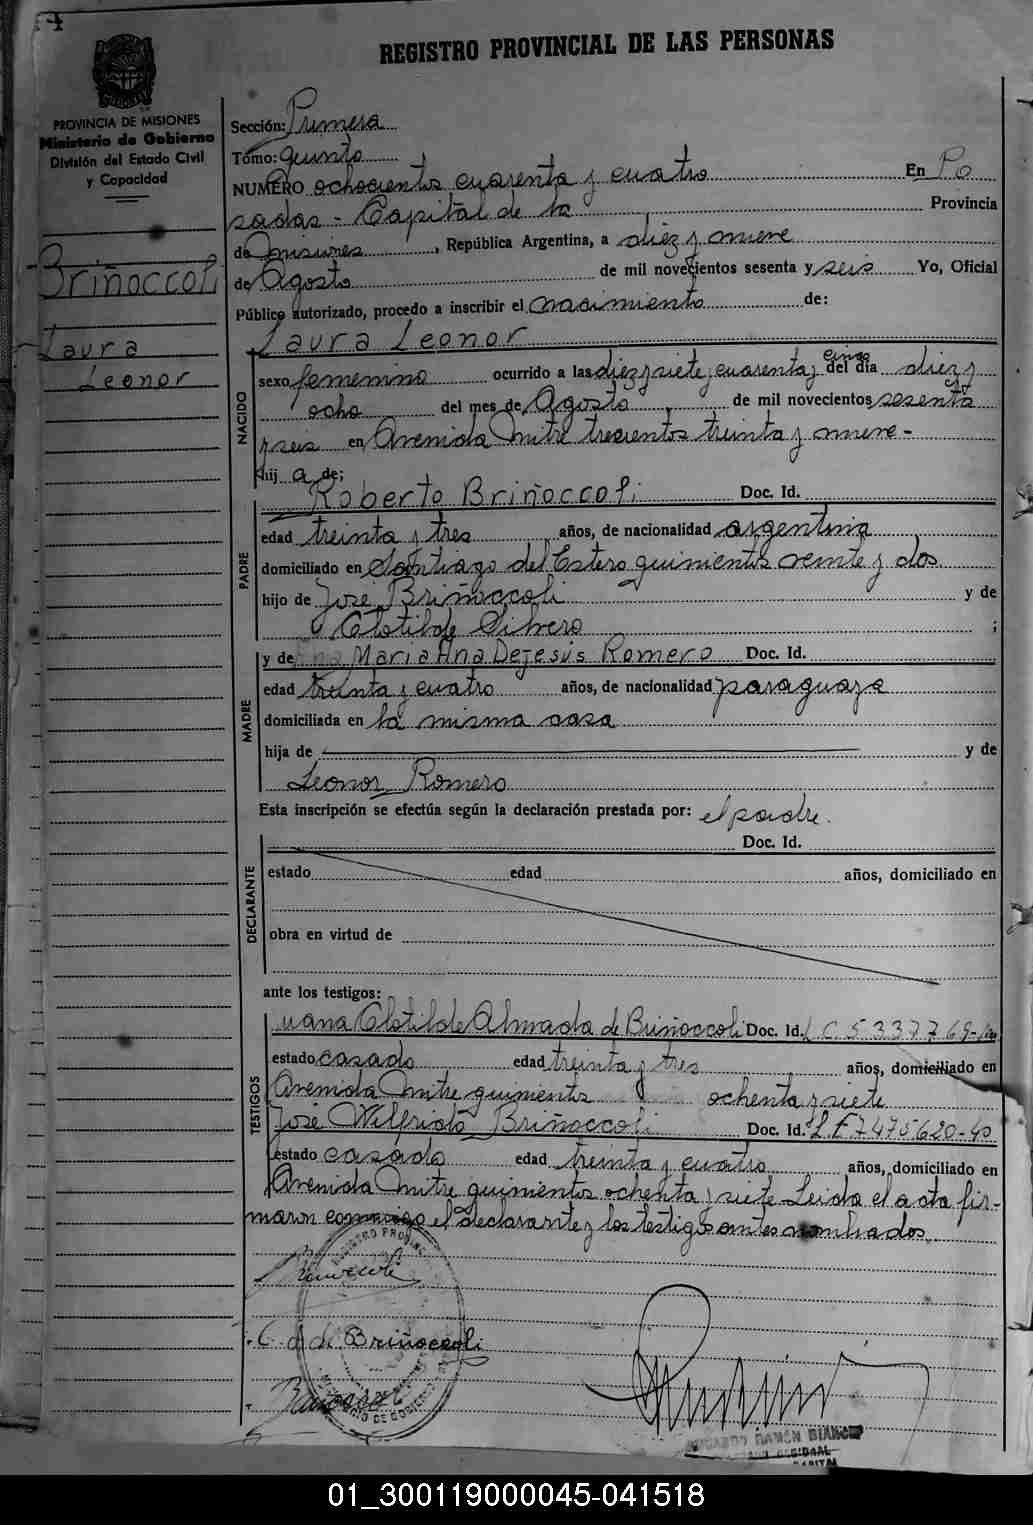 REGISTRO PROVINCIAL DE LAS PERSONAS
PROVINCIA DE MISIONES
Ministerio de Gobierno
División del Estado Civil
y Capacidad
Briñoccoli
Laura
Leonor
Sección: Primera
Tomo: quinto
NUMERO ochocientos cuarenta y cuatro En Po
sadas - Capital de la Provincia
de Misiones, República Argentina, a diez y nueve
de Agosto de mil novecientos sesenta y seis Yo, Oficial
Público autorizado, procedo a inscribir el nacimiento de:
Laura Leonor
NACIDO
sexo femenino ocurrido a las diez y siete y cuarenta y cinco del día diez y
ocho del mes de Agosto de mil novecientos sesenta
y seis en Avenida Mitre trecientos treinta y nueve-
hij a de;
Roberto Briñoccoli Doc. Id.
PADRE
edad treinta y tres años, de nacionalidad argentina
domiciliado en Santiago del Estero quinientos veinte y dos
hijo de José Briñoccoli y de
Clotilde Silvero ;
MADRE
y de Maria Ana Dejesús Romero Doc. Id.
edad treinta y cuatro años, de nacionalidad paraguaya
domiciliada en la misma casa
hija de y de
Leonor Romero
Esta inscripción se efectúa según la declaración prestada por: el padre.
DECLARANTE
Doc. Id.
estado edad años, domiciliado en
obra en virtud de
ante los testigos:
TESTIGOS
Juana Clotilde Almada de Briñoccoli Doc. Id. L C 5337769
estado casado edad treinta y tres años, domiciliado en
Avenida Mitre quinientos ochenta y siete
José Wilfrido Briñoccoli Doc. Id. L.E 7475620-40
estado casado edad treinta y cuatro años, domiciliado en
Avenida Mitre quinientos ochenta y siete Leida el acta fir-
maron conmigo el declarante y los testigos antes nombrados.
REGISTRO PROVINC
C. A de Briñoccoli
RAMÓN BIANCHI
01_300119000045-041518